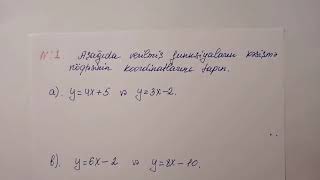 №1. Aşağıda verilmiş funksiyaların kəsişmə
nöqtəsinin koordinatlarını tapın.
a). y=4x+5 və y=3x-2.
b). y=6x-2 və y=8x-10.